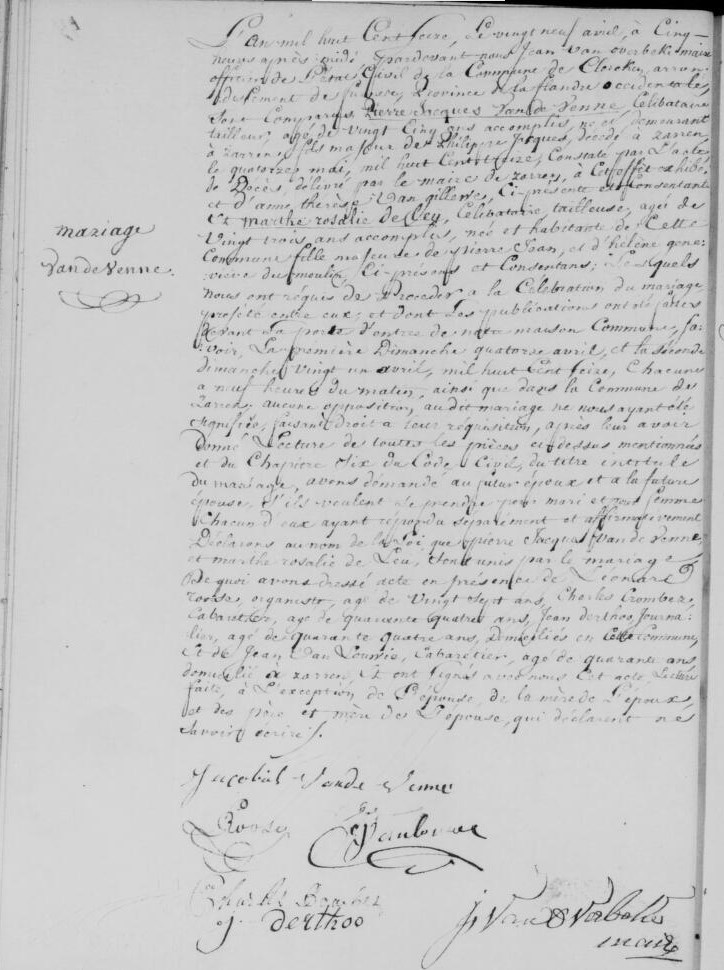 L'An mil huit Cent seize, Le vingt neuf avril, à Cinq
heures après midi, pardevant nous Jean van overbeke maire
officier de l'état Civil de la Commune de Clercken, arron-
dissement de furnes, Province de la flandre occidentale,
sont Comparus Pierre Jacques Van de Venne, Célibataire
tailleur, agé de vingt Cinq ans accomplis, né et demeurant
à zarren, fils majeur de Philippe Jacques, décédé à zarren,
le quatorze mai, mil huit Cent treize, Constaté par L'acte
de Décès, délivré par le maire de zarren, à Cet effet exhibé,
et d'anne thérèse Van gillewe, Ci-présente et Consentante
Et marthe rosalie de Leu, Célibataire, tailleuse, agée de
Vingt trois ans accomplis, née et habitante de Cette
Commune fille majeure de pierre Jean, et d'hélène gene-
viève du moulin, Ci-présens et Consentans; Lesquels
nous ont réquis de Procéder a la Célébration du mariage
projété entre eux, et dont Les publications ont été faites
devant La porte d'entrée de notre maison Commune, sa-
voir, La première Dimanche quatorze avril, et la seconde
dimanche vingt un avril, mil huit Cent seize, Chacune
a neuf heures du matin, ainsi que dans la Commune de
Zarren, aucune opposition audit mariage ne nous ayant été
signifiée, faisant droit a leur réquisition, après leur avoir
donné Lecture de toutes les pièces ci-dessus mentionnées
et du Chapitre six du Code Civil, du titre intitulé
du mariage, avons demandé au futur époux et a la future
épouse, s'ils veulent se prendre pour mari et pour femme
Chacun d'eux ayant répondu séparément et affirmativement
Déclarons au nom de la Loi, que pierre Jacques Van de Venne,
et marthe rosalie de Leu, sont unis par le mariage
De quoi avons dressé acte en présence de Léonard
roose, organiste, agé de vingt sept ans, Charles Crombez,
Cabaretier, agé de quarante quatre ans, Jean derthoo, Journa-
lier, agé de quarante quatre ans, Domiciliés en Cette Commune,
Et de Jean Van Louwie, Cabaretier, agé de quarante ans
domicilié à zarren, Et ont signés avec nous Cet acte, Lecture
faite, à L'exception de l'épouse, de la mère de L'époux,
et des père et mère de L'épouse, qui déclarent ne
savoir écrire.
mariage
Van de Venne.
Jacobus Vande Venne
L Roose
Charles
J derthoo
J Van Overbeke
maire